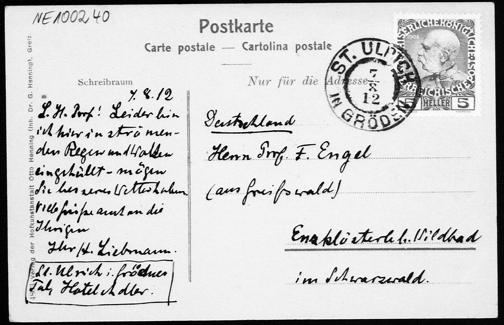 NE100240
Postkarte
Carte postale — Cartolina postale
Schreibraum
Nur für die Adresse
ST. ULRICH
7
X
12
IN GRÖDEN
5 HELLER 5
7.8.12
L. H. Prof! Leider bin
ich hier in strömen-
den Regen und Wolken
eingehüllt – mögen
Sie besseres Wetter haben
viele Grüsse an die
Ihrigen
Ihr H. Liebmann.
St. Ulrich i. Grödner
Tal, Hotel Adler.
Deutschland
Herrn Prof. F. Engel
(aus Greifswald)
Enzklösterle b. Wildbad
im Schwarzwald.
Verlag der Hofkunstanstalt Otto Henning (Inh. Dr. G. Henning), Greiz.